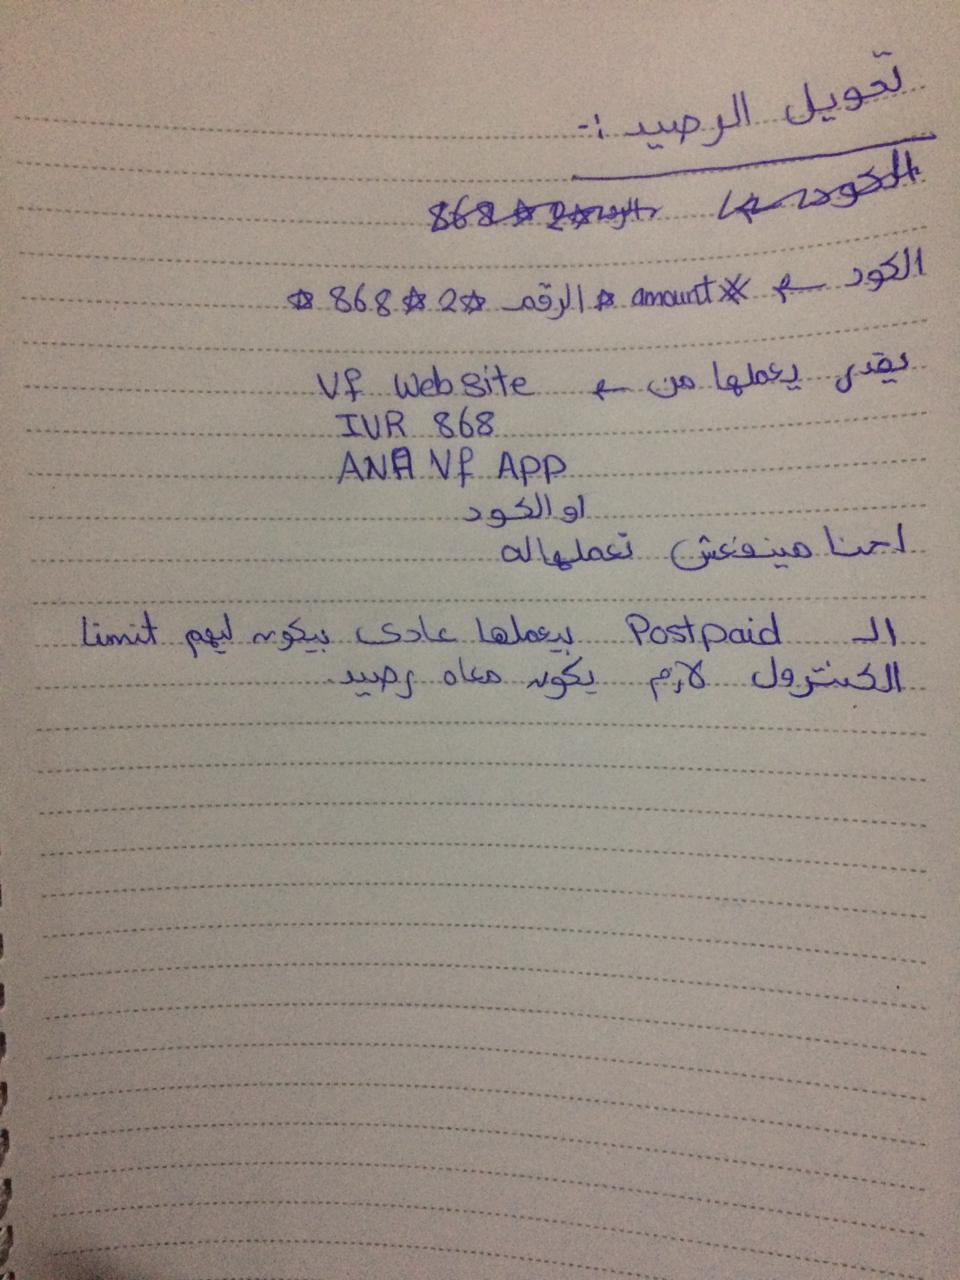 تحويل الرصيد :-
الكود ← 868*2*الرقم
الكود ← *868*2*الرقم*amount#
يقدر يعملها من ← Vf Website
IVR 868
ANA Vf App
او الكود
احنا مينفعش نعملهاله
الـ Postpaid بيعملها عادى بيكون ليهم limit
الكنترول لازم يكون معاه رصيد